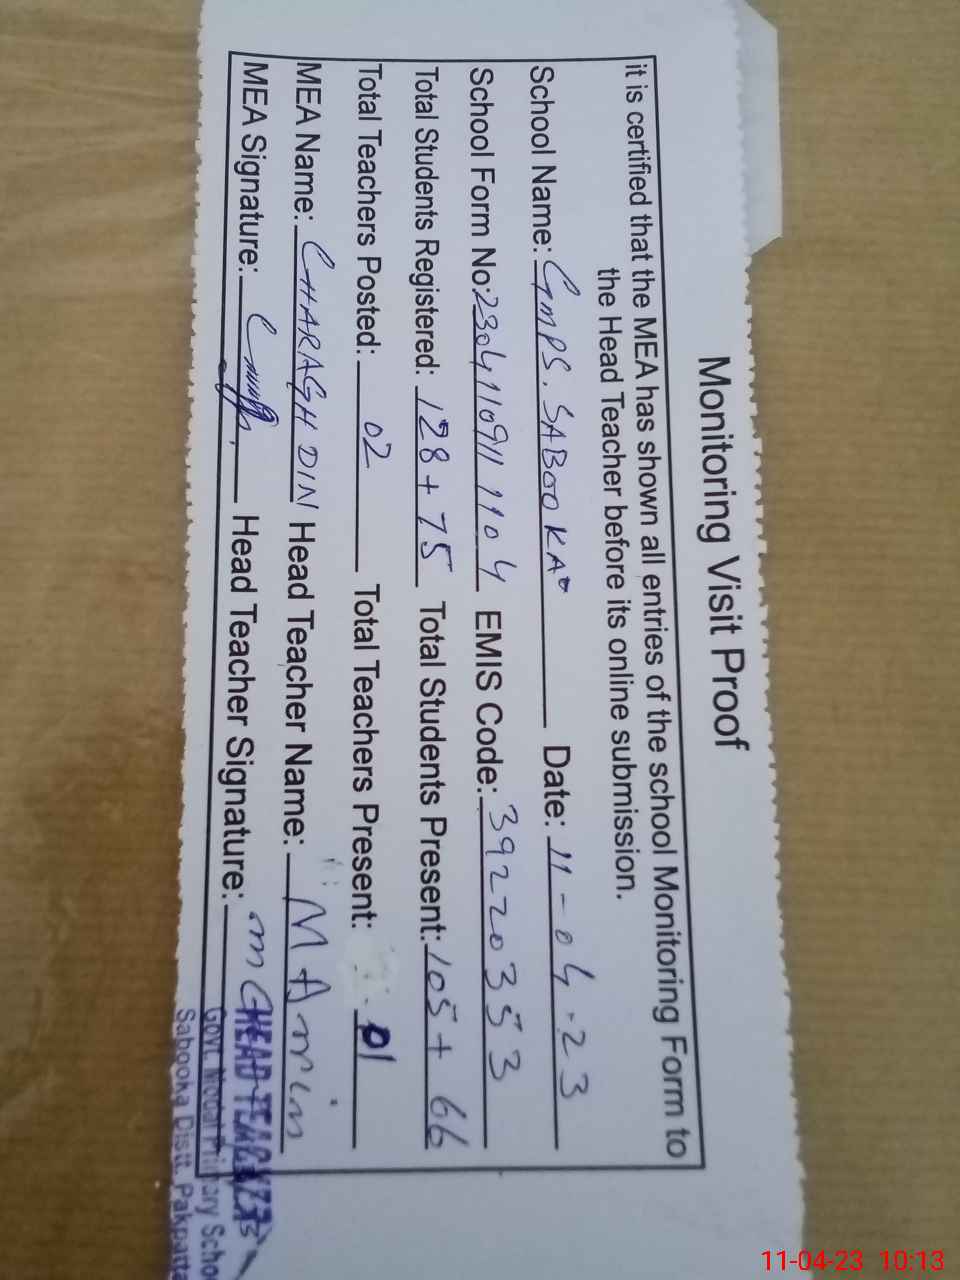 Monitoring Visit Proof
it is certified that the MEA has shown all entries of the school Monitoring Form to
the Head Teacher before its online submission.
School Name: GMPS. SABOOKA Date: 11-04-23
School Form No: 2304110911 1104 EMIS Code: 39220353
Total Students Registered: 128+75 Total Students Present: 105+66
Total Teachers Posted: 02 Total Teachers Present: 01
MEA Name: CHARAGH DIN Head Teacher Name: M Amin
MEA Signature: Head Teacher Signature:
HEAD TEACHER
Govt. Model Primary Schoo
Sabooka Distt. Pakpatta
11-04-23 10:13